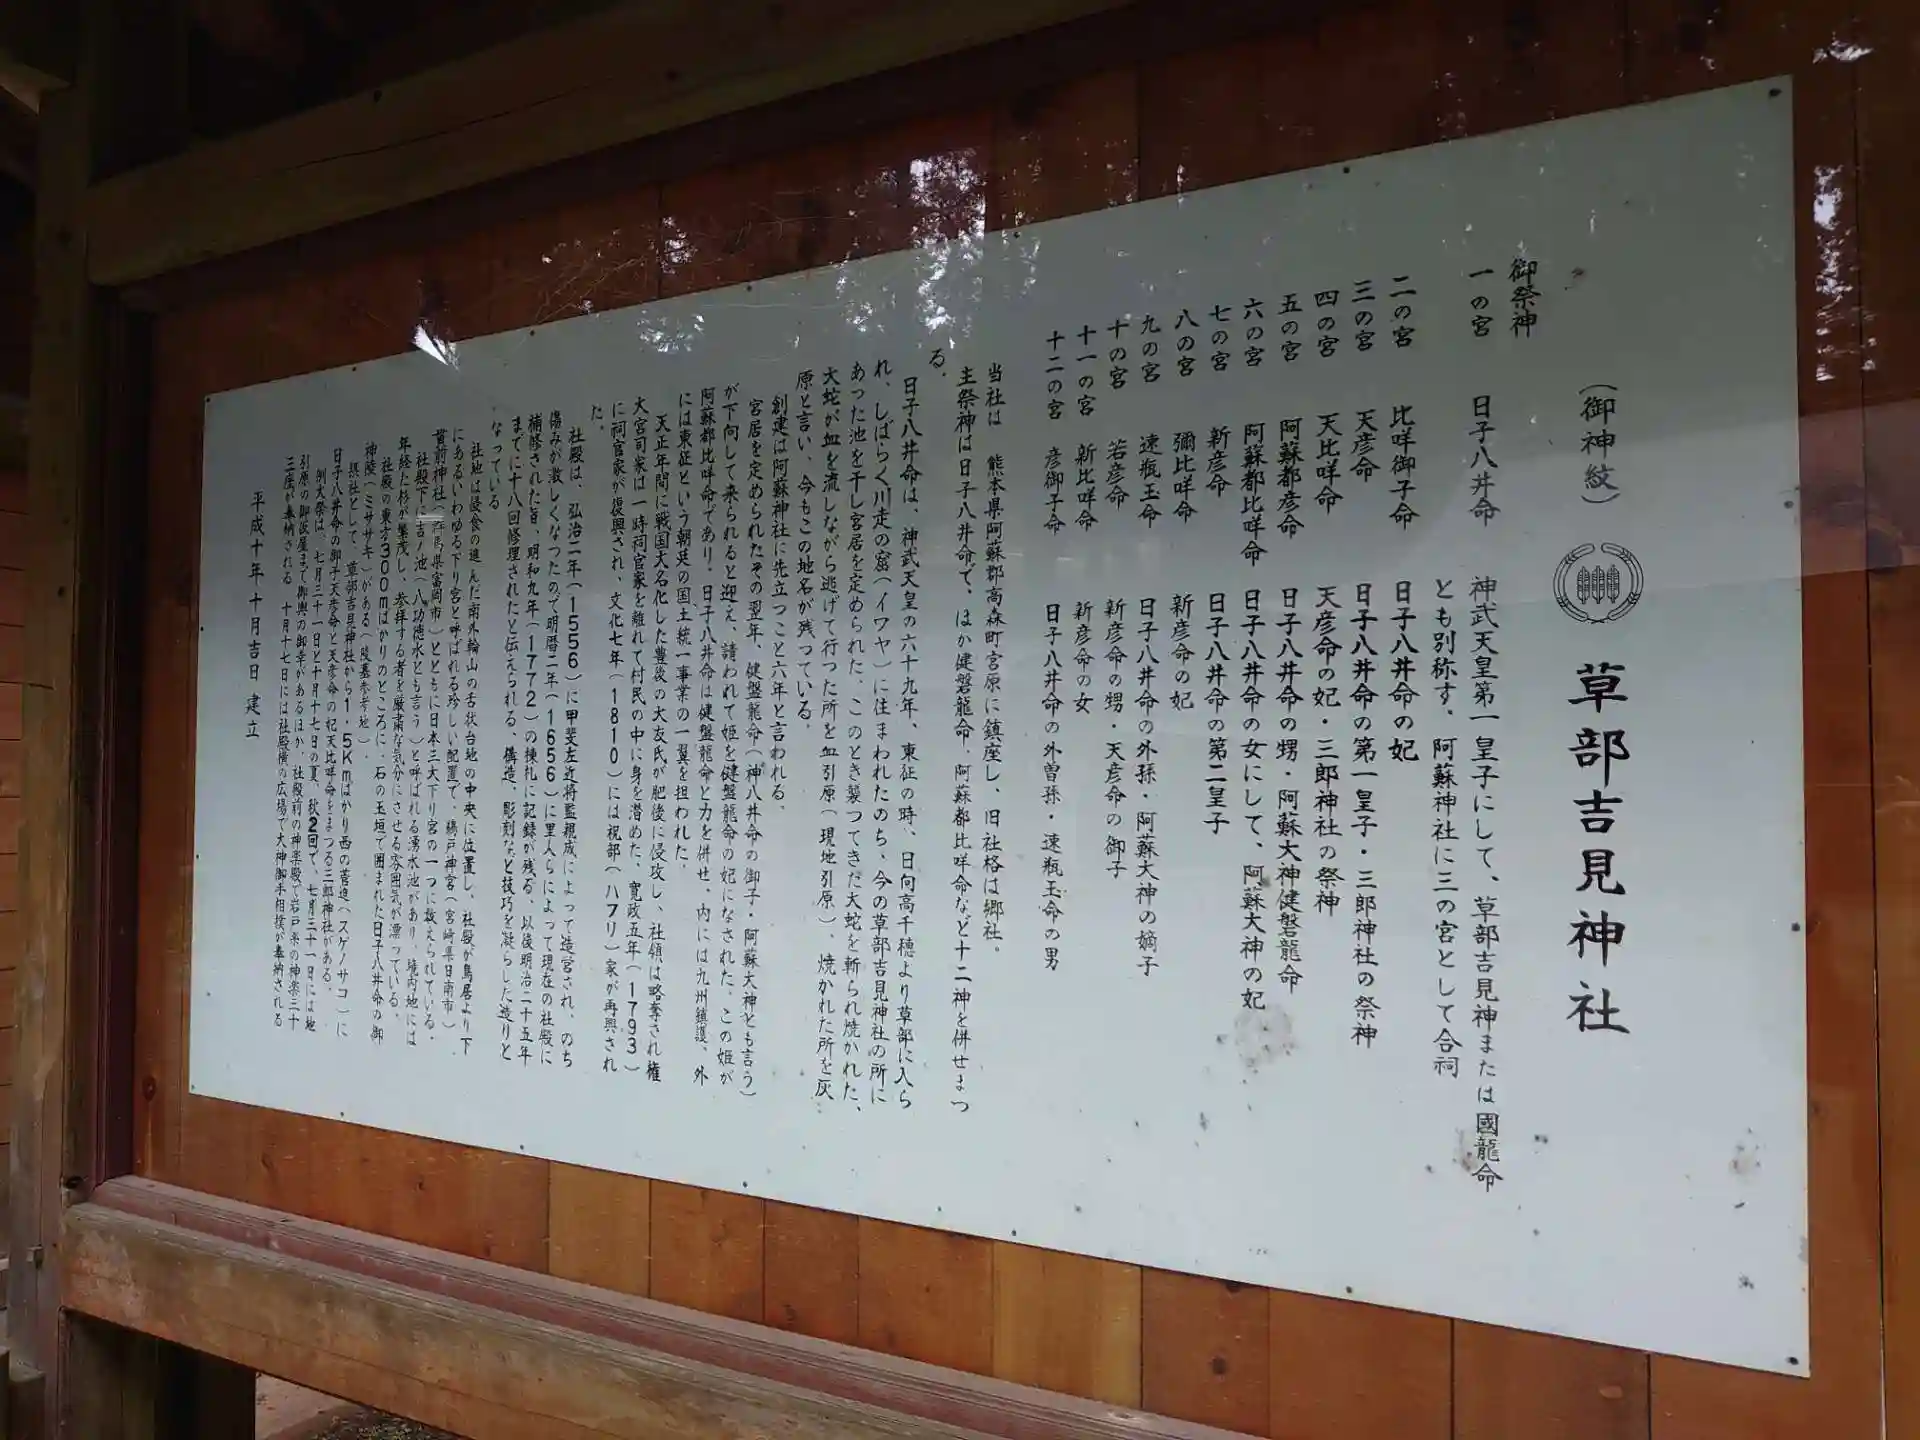 （御神紋） 草部吉見神社
御祭神
一の宮 日子八井命 神武天皇第一皇子にして、草部吉見神または國龍命
とも別称す。阿蘇神社に三の宮として合祠
二の宮 比咩御子命 日子八井命の妃
三の宮 天彦命 日子八井命の第一皇子・三郎神社の祭神
四の宮 天比咩命 天彦命の妃・三郎神社の祭神
五の宮 阿蘇都彦命 日子八井命の甥・阿蘇大神健磐龍命
六の宮 阿蘇都比咩命 日子八井命の女にして、阿蘇大神の妃
七の宮 新彦命 日子八井命の第二皇子
八の宮 彌比咩命 新彦命の妃
九の宮 速瓶玉命 日子八井命の外孫・阿蘇大神の嫡子
十の宮 若彦命 新彦命の甥・天彦命の御子
十一の宮 新比咩命 新彦命の女
十二の宮 彦御子命 日子八井命の外曽孫・速瓶玉命の男
当社は 熊本県阿蘇郡高森町宮原に鎮座し、旧社格は郷社。
主祭神は日子八井命で、ほか健磐龍命、阿蘇都比咩命など十二神を併せまつ
る。
日子八井命は、神武天皇の六十九年、東征の時、日向高千穂より草部に入ら
れ、しばらく川走の窟（イワヤ）に住まわれたのち、今の草部吉見神社の所に
あった池を干し宮居を定められた。このとき襲ってきた大蛇を斬られ焼かれた、
大蛇が血を流しながら逃げて行った所を血引原（現地引原）、焼かれた所を灰
原と言い、今もこの地名が残っている。
創建は阿蘇神社に先立つこと六年と言われる
宮居を定められたその翌年、健盤龍命（神八井命の御子・阿蘇大神とも言う）
が下向して来られると迎え、請われて姫を健盤龍命の妃になされた。この姫が
阿蘇都比咩命であり、日子八井命は健盤龍命と力を併せ、内には九州鎮護、外
には東征という朝廷の国土統一事業の一翼を担われた。
天正年間に戦国大名化した豊後の大友氏が肥後に侵攻し、社領は略奪され権
大宮司家は一時祠官家を離れて村民の中に身を潜めた、寛政五年（1793）
に祠官家が復興され、文化七年（1810）には祝部（ハフリ）家が再興され
た。
社殿は、弘治二年（1556）に甲斐左近将監親成によって造営され、のち
傷みが激しくなったので明暦二年（1656）に里人らによって現在の社殿に
補修された旨、明和九年（1772）の棟札に記録が残る、以後明治二十五年
までに十八回修理されたと伝えられる、構造、彫刻など技巧を凝らした造りと
なっている
社地は侵食の進んだ南外輪山の舌状台地の中央に位置し、社殿が鳥居より下
にあるいわゆる下り宮と呼ばれる珍しい配置で、鵜戸神宮（宮崎県日南市）
貫前神社（群馬県富岡市）とともに日本三大下り宮の一つに数えられている。
社殿下に吉ノ池（八功徳水とも言う）と呼ばれる湧水池があり、境内地には
年経た杉が繁茂し、参拝する者を厳粛な気分にさせる雰囲気が漂っている。
社殿の東方300mばかりのところに、石の玉垣で囲まれた日子八井命の御
神陵（ミササギ）がある（陵墓参考地）
摂社として、草部吉見神社から1.5Kmばかり西の菅迫（スゲノサコ）に
日子八井命の御子天彦命と天彦命の妃天比咩命をまつる三郎神社がある。
例大祭は、七月三十一日と十月十七日の夏、秋2回で、七月三十一日には地
引原の御仮屋まで御輿の御幸があるほか、社殿前の神楽殿で岩戸楽の神楽三十
三座が奉納される 十月十七日には社殿横の広場で大神御手相撲が奉納される
平成十年十月吉日 建立